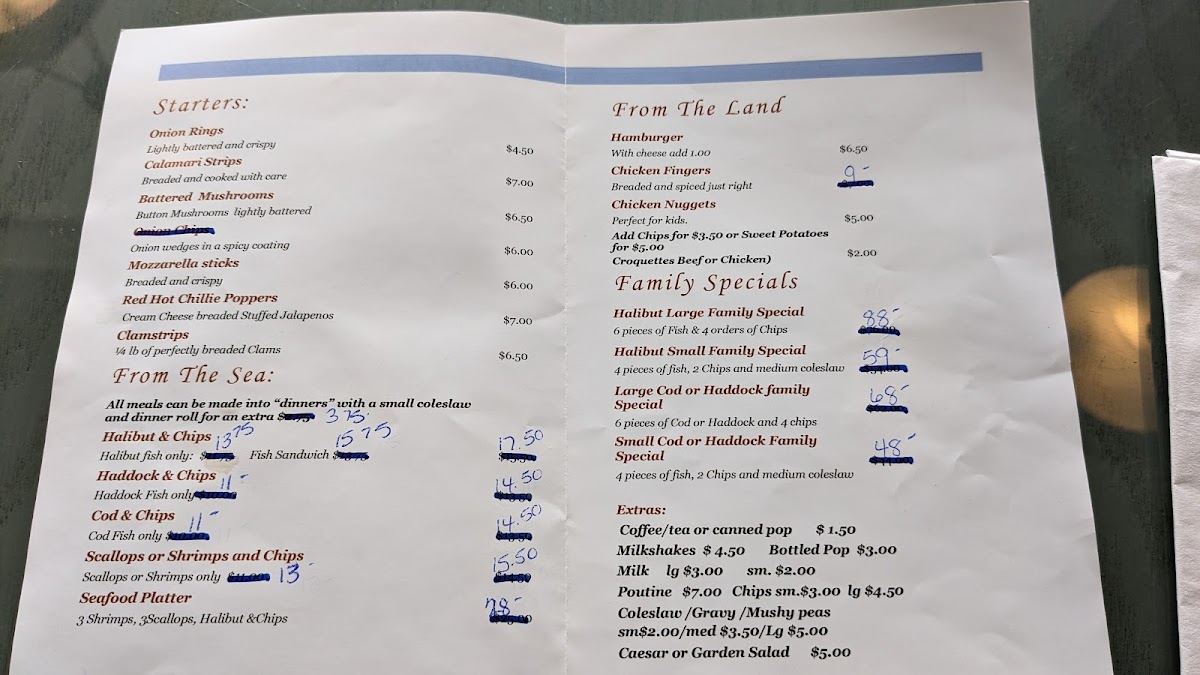 Starters:
Onion Rings
Lightly battered and crispy $4.50
Calamari Strips
Breaded and cooked with care $7.00
Battered Mushrooms
Button Mushrooms lightly battered $6.50
Onion Chips
Onion wedges in a spicy coating $6.00
Mozzarella sticks
Breaded and crispy $6.00
Red Hot Chillie Poppers
Cream Cheese breaded Stuffed Jalapenos $7.00
Clamstrips
¼ lb of perfectly breaded Clams $6.50
From The Sea:
All meals can be made into "dinners" with a small coleslaw
and dinner roll for an extra 3 75
Halibut & Chips 13 75 15 75 17.50
Halibut fish only: Fish Sandwich
Haddock & Chips 11- 14.50
Haddock Fish only
Cod & Chips 11- 14.50
Cod Fish only
Scallops or Shrimps and Chips 15.50
Scallops or Shrimps only $11.00 13-
Seafood Platter 28-
3 Shrimps, 3Scallops, Halibut &Chips
From The Land
Hamburger
With cheese add 1.00 $6.50
Chicken Fingers 9-
Breaded and spiced just right
Chicken Nuggets
Perfect for kids. $5.00
Add Chips for $3.50 or Sweet Potatoes
for $5.00
Croquettes Beef or Chicken) $2.00
Family Specials
Halibut Large Family Special 88-
6 pieces of Fish & 4 orders of Chips
Halibut Small Family Special 59-
4 pieces of fish, 2 Chips and medium coleslaw
Large Cod or Haddock family 68-
Special
6 pieces of Cod or Haddock and 4 chips
Small Cod or Haddock Family 48-
Special
4 pieces of fish, 2 Chips and medium coleslaw
Extras:
Coffee/tea or canned pop $ 1.50
Milkshakes $ 4.50 Bottled Pop $3.00
Milk lg $3.00 sm. $2.00
Poutine $7.00 Chips sm.$3.00 lg $4.50
Coleslaw /Gravy /Mushy peas
sm$2.00/med $3.50/Lg $5.00
Caesar or Garden Salad $5.00